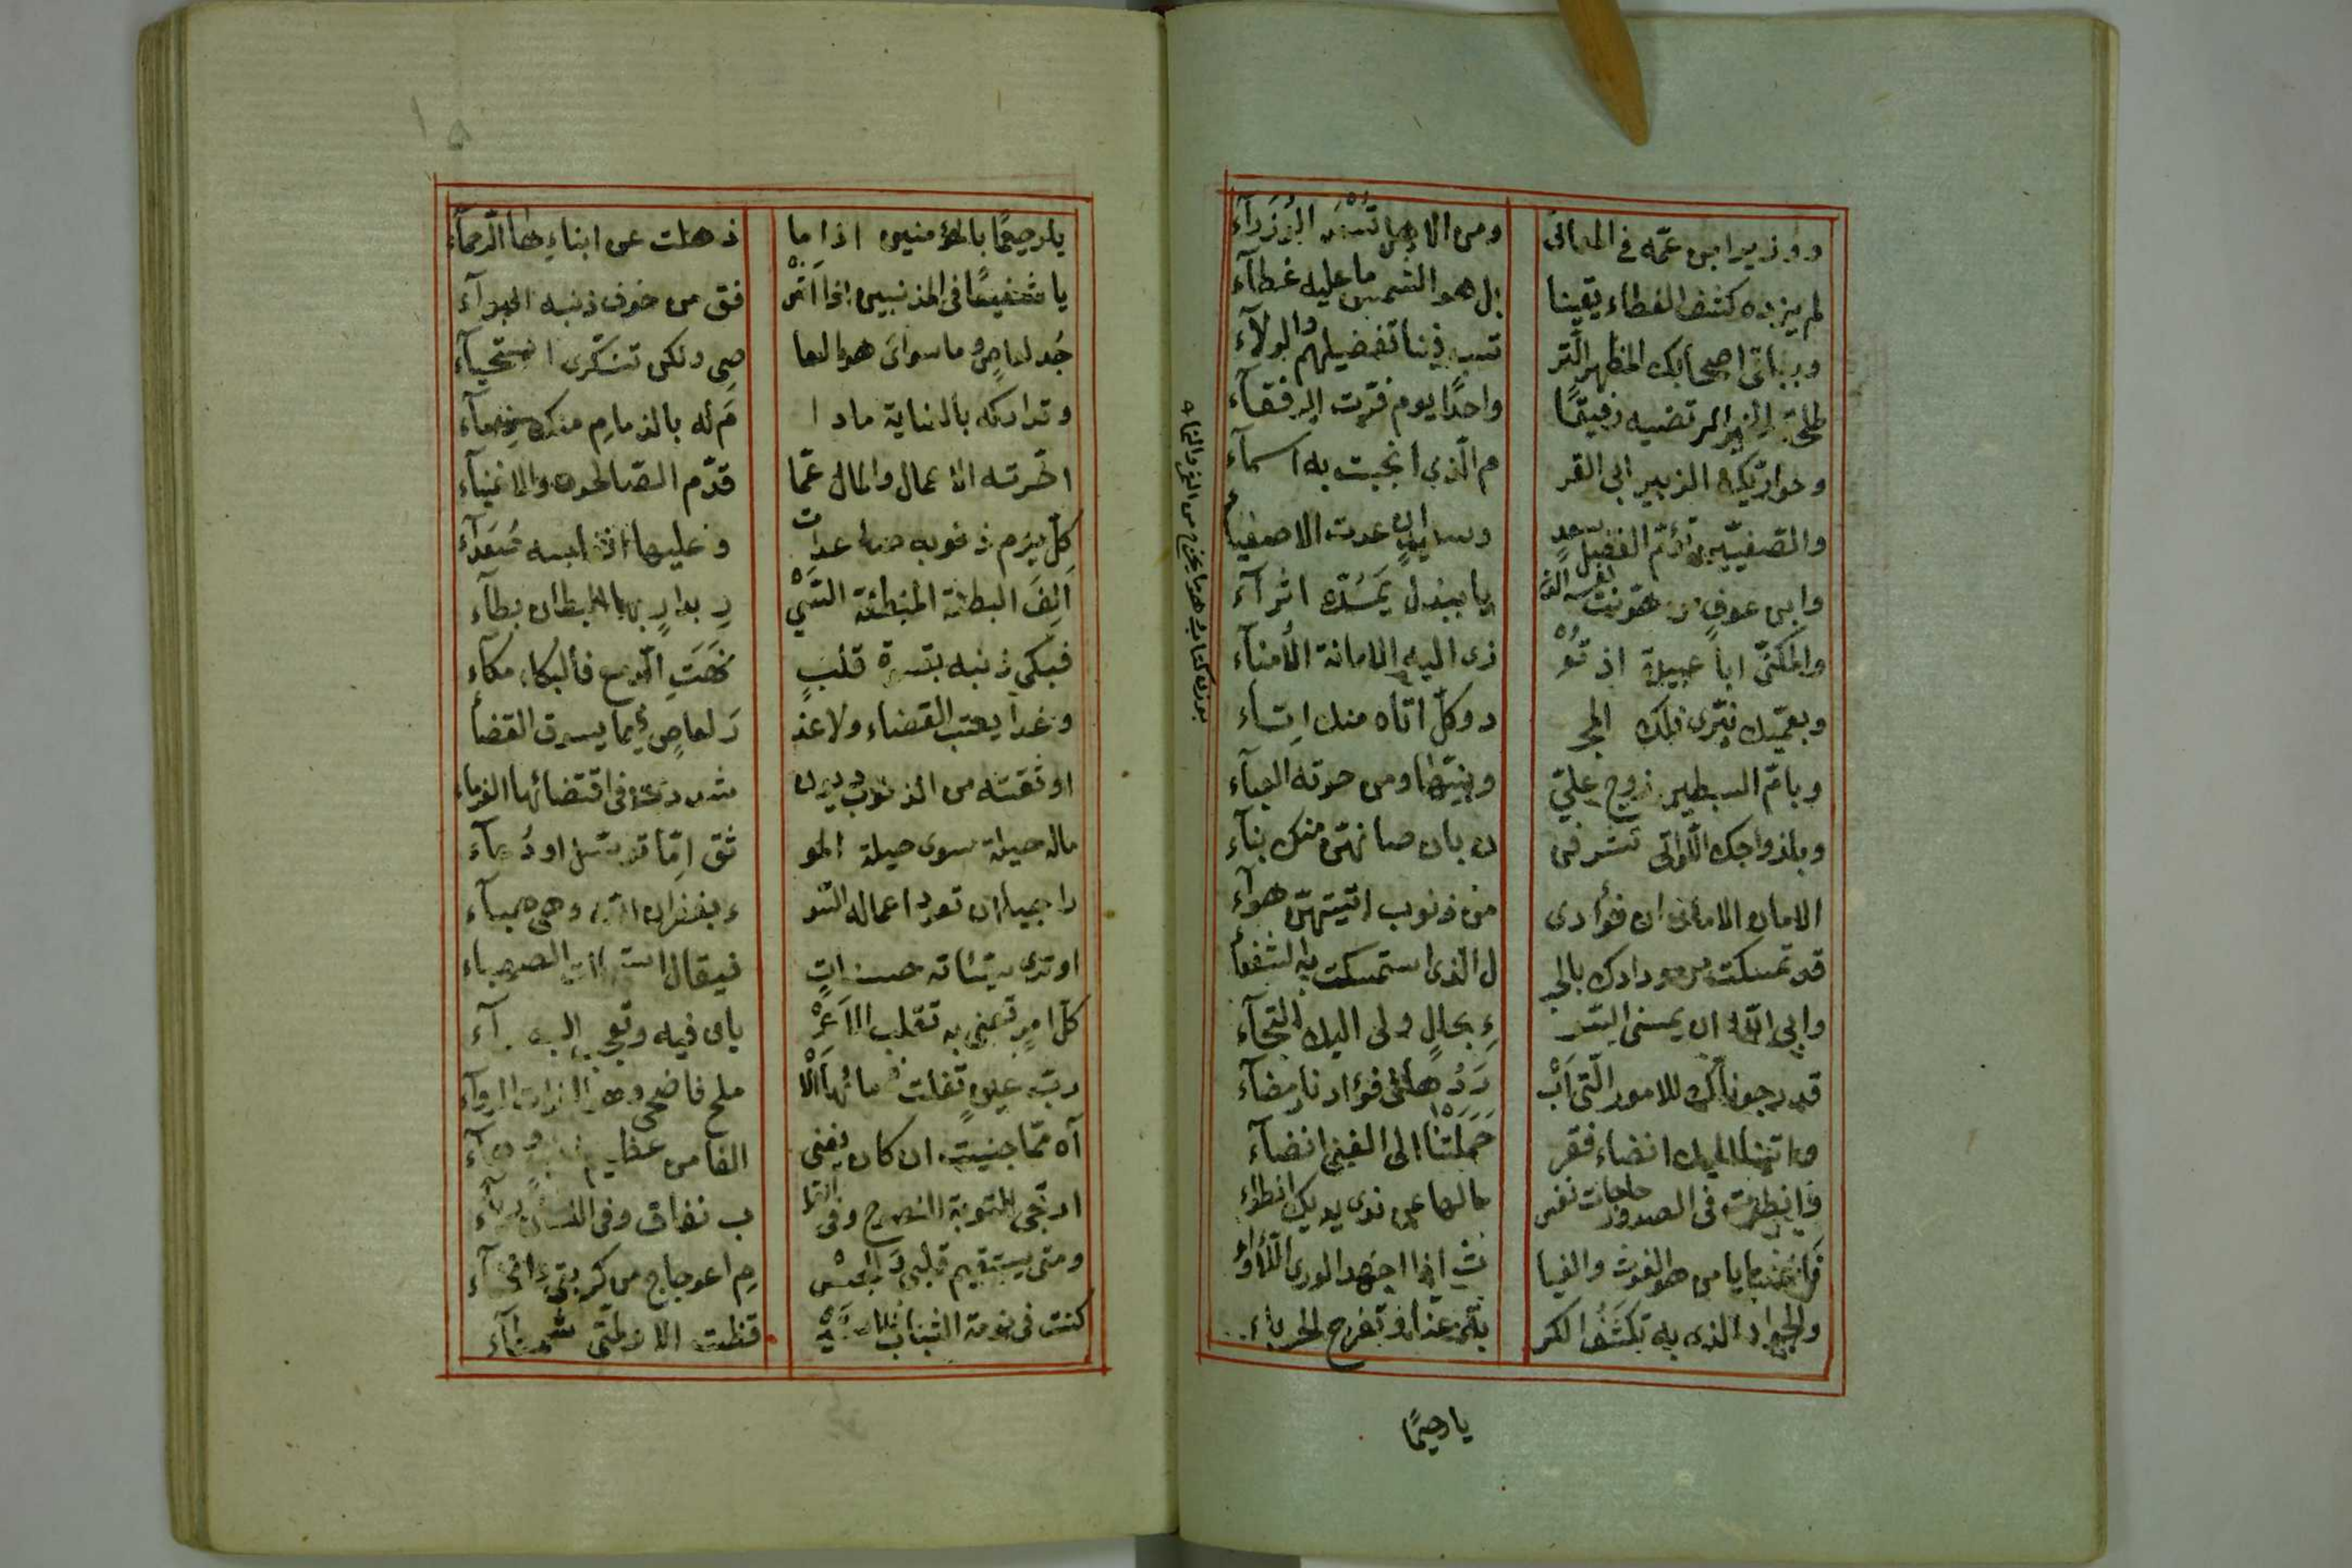 ووزير ابن عمّه في المعالى ومن الاهل تُسْعَد الوُزَرَآء
لم يزده كشف الغطاء يقينا بل هو الشمس ما عليه غطآء
وبباقى اصحابك المظهر التّر تيب فينا تفضيلهم والولآء
طلحة الخير المرتضيه رفيقًا واحدًا يوم فرّت الرفقآء
وحواريّك الزبير ابى القر م الّذى انجبت به اسمآء
والصّفيّين توأم الفضل سعدٍ وسعيدٍ ان عدت الاصفيآء
وابن عوفٍ من هوّنت نفسه الدّنـ يا ببذل يَمُدّه اثرآء
والمكنّى اباً عبيدة اذ تعْـ زى اليه الامانة الأمنآء
وبعمّيك نيّرى فلك المجـ د وكلّ اتاه منك اِتآء
وبامّ السبطين زوج علىّ وبنيها ومن حوته العبآء
وبازواجك اللّواتى تشرفـ ن بان صانهنّ منك بنآء
الامان الامان ان فؤادى من ذنوب اتيتهنّ هوآء
قد تمسكت من ودادك بالحبـ ل الذى استمسكت به الشفعآ
وابى اللّه ان يمسنى السّو ءِ بحالٍ ولى اليك التجآء
قد رجوناك للامور الّتى اَبْـ رَدُها فى فؤادنا رمضآء
واتينا اليك انضاء فقر حَمَلَتْنا الى الغنى انضآء
وانطوت فى الصدور حاجات نفس مالها عن ندى يديك انطوآء
فاغثنا يا من هو الغوث والغيـ ث اذا اجهد الورى اللّأوآء
والجواد الذى به تكشف الكر بة عنّا وتفرج الحوباء
يا رحيمًا
يا رحيمًا بالمؤمنين اذا ما ذهلت عن ابناءِها الرّحمآء
يا شفيعًا فى المذنبين اذا اشْـ فق من خوف ذنبه البرآء
جُد لعاصٍ وما سواى هو العا صى ولكن تنكّرى استحيآء
وتداركه بالعناية ما دا مَ له بالذمامِ منك ذمآء
اخّرته الاعمال والمال عمّا قدّم الصّالحون والاغنيآء
كلّ يوم ذنوبه صاعدات وعليها انفاسه صُعَدآء
اَلِفَ البطنة المبطئة السَّيْـ رِ بدارٍ بها البطان بطآء
فبكى ذنبه بقسوة قلبٍ نهَتِ الدّمع فالبكاء مكآء
وغدا يعتب القضاء ولا عذ رَ لعاصٍ فيما يسوق القضآ
اوثقته من الذنوب ديون شددت فى اقتضائها الغرماء
ماله حيلة سوى حيلة المو ثق اِمّا توسّل او دُعآء
راجيا ان تعود اعماله السّو ء بغفران اللّه وهى هبآء
او ترى سيّئاته حسناتٍ فيقال استحالت الصهباء
كلّ امرٍ تعنى به تقلب الاَعْـ يان فيه وتعجب البصرآء
ربّ عينٍ تفلت فى مائها اَلْـ ملح فاضحى وهو الفرات الروآء
آه ممّا جنيت ان كان يغنى الف من عظيم ذنبٍ وهآء
ارتجى التوبة النصوح وفى القلـ ب نفاق وفى اللسان ريآء
ومتى يستقيم قلبى وللجسْـ مِ اعوجاج من كبرتى وانحنآء
كنت فى نومة الشباب فما اسْـ ـتيقظت الا ولمّتى شمطآء